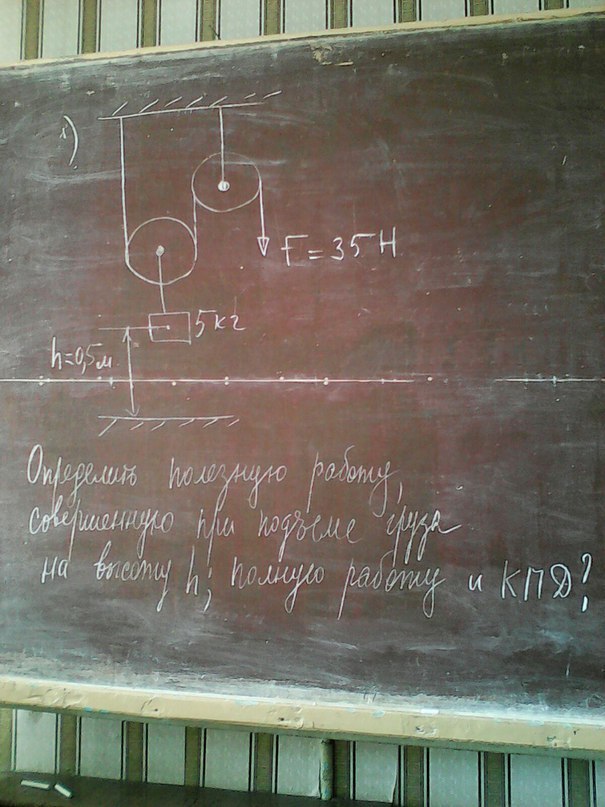 1)
F = 35 Н
5 кг
h=0,5м
Определить полезную работу,
совершенную при подъеме груза
на высоту h; полную работу и КПД?